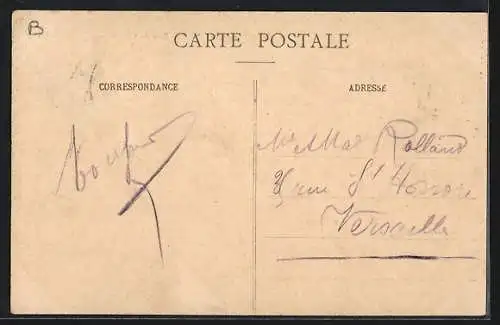 B
CARTE POSTALE
CORRESPONDANCE
ADRESSE
Rolland
rue St Honoré
Versaille